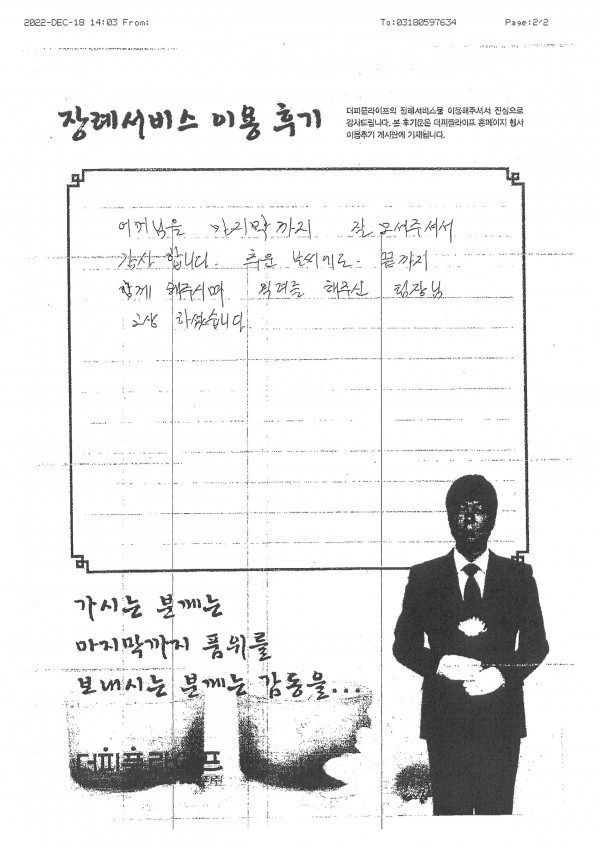 2022-DEC-18 14:03 From: To:03180597634 Page:2/2
장례서비스 이용 후기
더피플라이프의 장례서비스를 이용해주셔서 진심으로
감사드립니다. 본 후기글은 더피플라이프 홈페이지 행사
이용후기 게시판에 기재됩니다.
어머님을 마지막까지 잘 모셔주셔서
감사 합니다. 추운 날씨에도. 끝까지
함께 해주시며 격려를 해주신 팀장님
고생 하셨습니다
가시는 분께는
마지막까지 품위를
보내시는 분께는 감동을...
더피플라이프